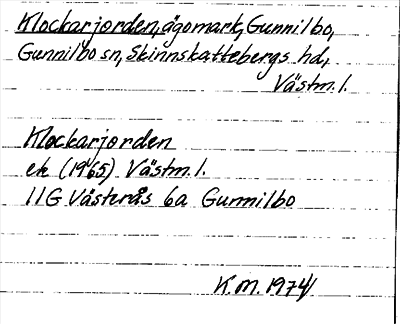 Klockarjorden, ägomark, Gunnilbo,
Gunnilbo sn, Skinnskattebergs hd,
Västm.l.
Klockarjorden
ek (1965) Västm.l.
11G Västerås 6a Gunnilbo
K.M. 1974